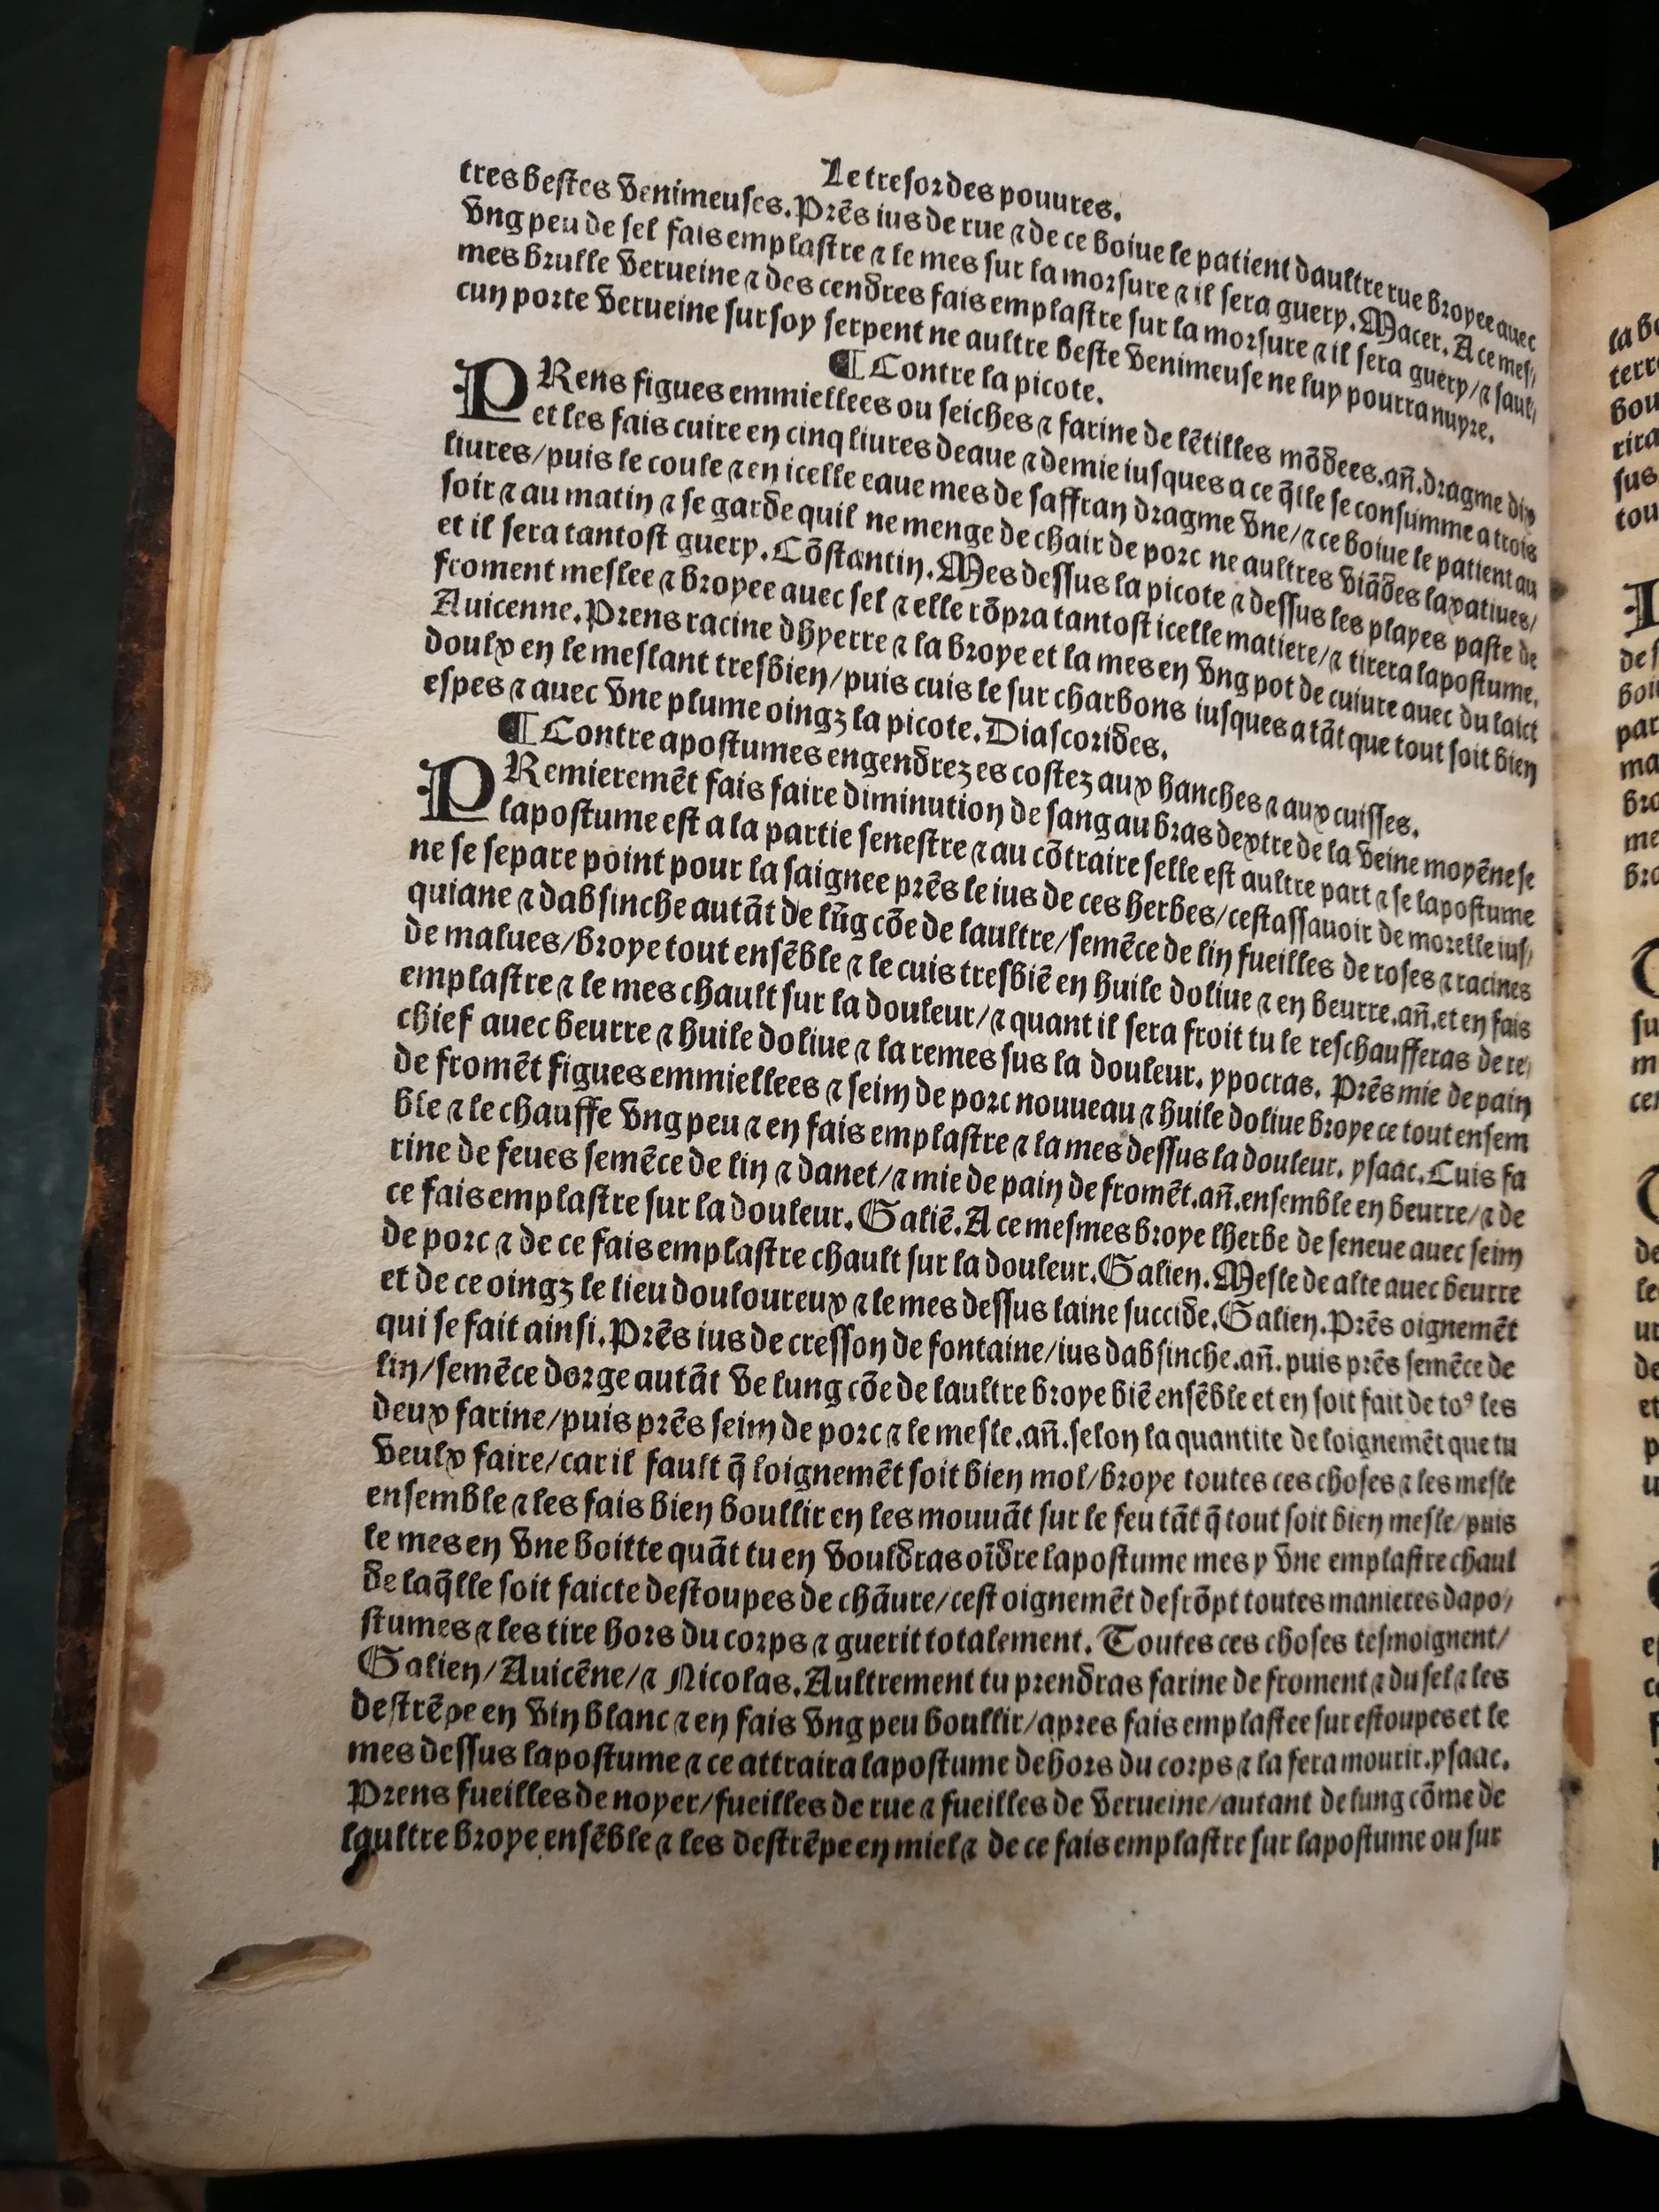 Le tresor des pouures.
tres bestes venimeuses. Prẽs ius de rue ⁊ de ce boiue le patient daultre rue broyee auec
vng peu de sel fais emplastre ⁊ le mes sur la morsure ⁊ il sera guery. Macer. A ce mes/
mes brulle verueine ⁊ des cendres fais emplastre sur la morsure ⁊ il sera guery/⁊ saul/
cun porte verueine sur soy serpent ne aultre beste venimeuse ne luy pourra nuyre.
¶ Contre la picote.
PRens figues emmiellees ou seiches ⁊ farine de lẽtilles mõdees.añ.dragme dix
et les fais cuire en cinq liures deaue ⁊ demie iusques a ce q̃lle se consumme a trois
liures/puis le coule ⁊ en icelle eaue mes de saffran dragme vne/⁊ ce boiue le patient au
soir ⁊ au matin ⁊ se garde quil ne menge de chair de porc ne aultres viãdes laxatiues/
et il sera tantost guery. Cõstantin. Mes dessus la picote ⁊ dessus les playes paste de
froment meslee ⁊ broyee auec sel ⁊ elle rõpra tantost icelle matiere/⁊ tirera lapostume.
Auicenne. Prens racine dhyerre ⁊ la broye et la mes en vng pot de cuiure auec du laict
doulx en le meslant tresbien/puis cuis le sur charbons iusques a tãt que tout soit bien
espes ⁊ auec vne plume oingz la picote. Diascorides.
¶ Contre apostumes engendrez es costez aux hanches ⁊ aux cuisses.
PRemieremẽt fais faire diminution de sang au bras dextre de la veine moyẽne se
lapostume est a la partie senestre ⁊ au cõtraire selle est aultre part ⁊ se lapostume
ne se separe point pour la saignee prẽs le ius de ces herbes/cestassauoir de morelle ius/
quiane ⁊ dabsinche autãt de lũg cõe de laultre/semẽce de lin fueilles de roses ⁊ racines
de malues/broye tout ensẽble ⁊ le cuis tresbiẽ en huile doliue ⁊ en beurre.añ.et en fais
emplastre ⁊ le mes chault sur la douleur/⁊ quant il sera froit tu le reschaufferas de re/
chief auec beurre ⁊ huile doliue ⁊ la remes sus la douleur. ypocras. Prẽs mie de pain
de fromẽt figues emmiellees ⁊ seim de porc nouueau ⁊ huile doliue broye ce tout ensem
ble ⁊ le chauffe vng peu ⁊ en fais emplastre ⁊ la mes dessus la douleur. ysaac. Cuis fa
rine de feues semẽce de lin ⁊ danet/⁊ mie de pain de fromẽt.añ.ensemble en beurre/⁊ de
ce fais emplastre sur la douleur. Galiẽ. A ce mesmes broye lherbe de seneue auec seim
de porc ⁊ de ce fais emplastre chault sur la douleur. Galien. Mesle de alte auec beurre
et de ce oingz le lieu douloureux ⁊ le mes dessus laine succide. Galien. Prẽs oignemẽt
qui se fait ainsi. Prẽs ius de cresson de fontaine/ius dabsinche.añ. puis prẽs semẽce de
lin/semẽce dorge autãt ve lung cõe de laultre broye biẽ ensẽble et en soit fait de toꝰ les
deux farine/puis prẽs seim de porc ⁊ le mesle.añ.selon la quantite de loignemẽt que tu
veulx faire/car il fault q̃ loignemẽt soit bien mol/broye toutes ces choses ⁊ les mesle
ensemble ⁊ les fais bien boullir en les mouuãt sur le feu tãt q̃ tout soit bien mesle/puis
le mes en vne boitte quãt tu en vouldras oĩdre lapostume mes y vne emplastre chaul
de laq̃lle soit faicte destoupes de chãure/cest oignemẽt desrõpt toutes manieres dapo/
stumes ⁊ les tire hors du corps ⁊ guerit totalement. Toutes ces choses tesmoignent/
Galien/Auicẽne/⁊ Nicolas. Aultrement tu prendras farine de froment ⁊ du sel ⁊ les
destrẽpe en vin blanc ⁊ en fais vng peu boullir/apres fais emplastee sur estoupes et le
mes dessus lapostume ⁊ ce attraira lapostume dehors du corps ⁊ la fera mourir. ysaac.
Prens fueilles de noyer/fueilles de rue ⁊ fueilles de verueine/autant de lung cõme de
laultre broye ensẽble ⁊ les destrẽpe en miel ⁊ de ce fais emplastre sur lapostume ou sur